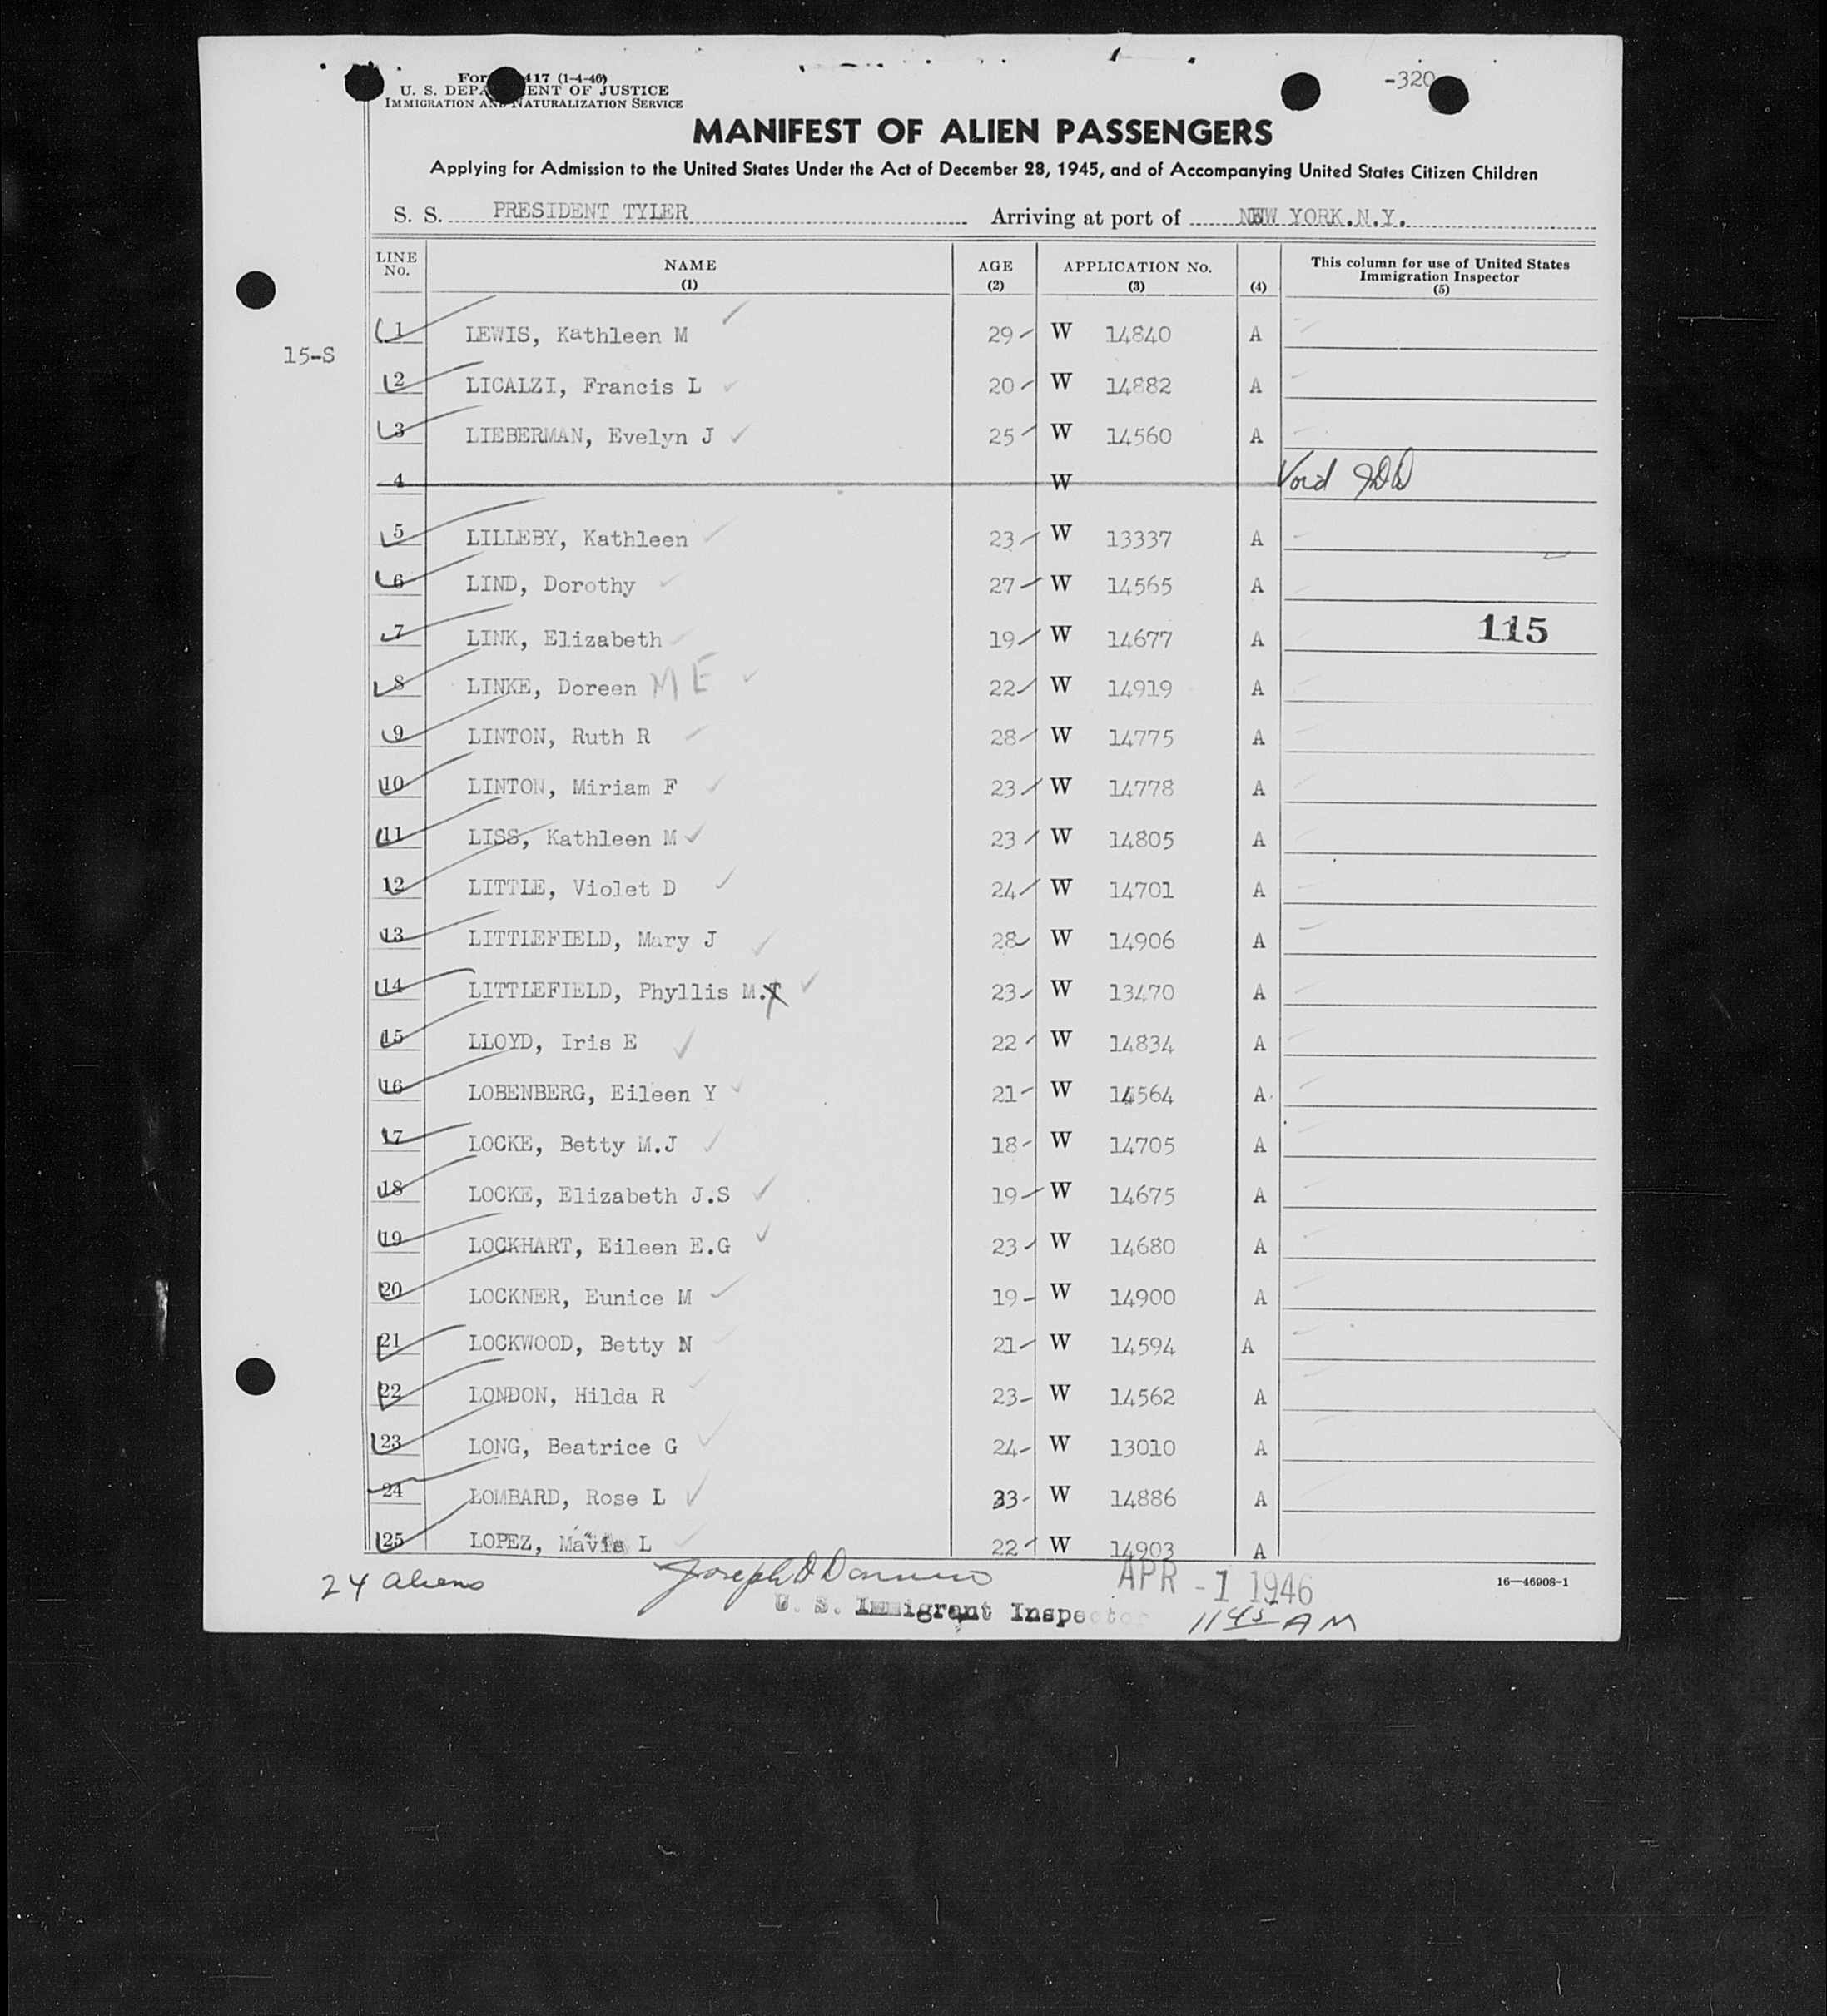 417 (1-4-46)
-320
U. S. DEPARTMENT OF JUSTICE
IMMIGRATION AND NATURALIZATION SERVICE
MANIFEST OF ALIEN PASSENGERS
Applying for Admission to the United States Under the Act of December 28, 1945, and of Accompanying United States Citizen Children
S. S. PRESIDENT TYLER Arriving at port of NEW YORK.N.Y.
LINE No. NAME (1) AGE (2) APPLICATION No. (3) (4) This column for use of United States Immigration Inspector (5)
15-S
1 LEWIS, Kathleen M 29 W 14840 A
2 LICALZI, Francis L 20 W 14882 A
3 LIEBERMAN, Evelyn J 25 W 14560 A
4 W Void JDD
5 LILLEBY, Kathleen 23 W 13337 A
6 LIND, Dorothy 27 W 14565 A
7 LINK, Elizabeth 19 W 14677 A 115
8 LINKE, Doreen M E 22 W 14919 A
9 LINTON, Ruth R 28 W 14775 A
10 LINTON, Miriam F 23 W 14778 A
11 LISS, Kathleen M 23 W 14805 A
12 LITTLE, Violet D 24 W 14701 A
13 LITTLEFIELD, Mary J 28 W 14906 A
14 LITTLEFIELD, Phyllis M. 23 W 13470 A
15 LLOYD, Iris E 22 W 14834 A
16 LOBENBERG, Eileen Y 21 W 14564 A
17 LOCKE, Betty M.J 18 W 14705 A
18 LOCKE, Elizabeth J.S 19 W 14675 A
19 LOCKHART, Eileen E.G 23 W 14680 A
20 LOCKNER, Eunice M 19 W 14900 A
21 LOCKWOOD, Betty N 21 W 14594 A
22 LONDON, Hilda R 23 W 14562 A
23 LONG, Beatrice G 24 W 13010 A
24 LOMBARD, Rose L 33 W 14886 A
25 LOPEZ, Mavis L 22 W 14903 A
24 aliens Joseph D APR -1 1946 16—46908-1
U. S. Immigrant Inspector 11 45 AM